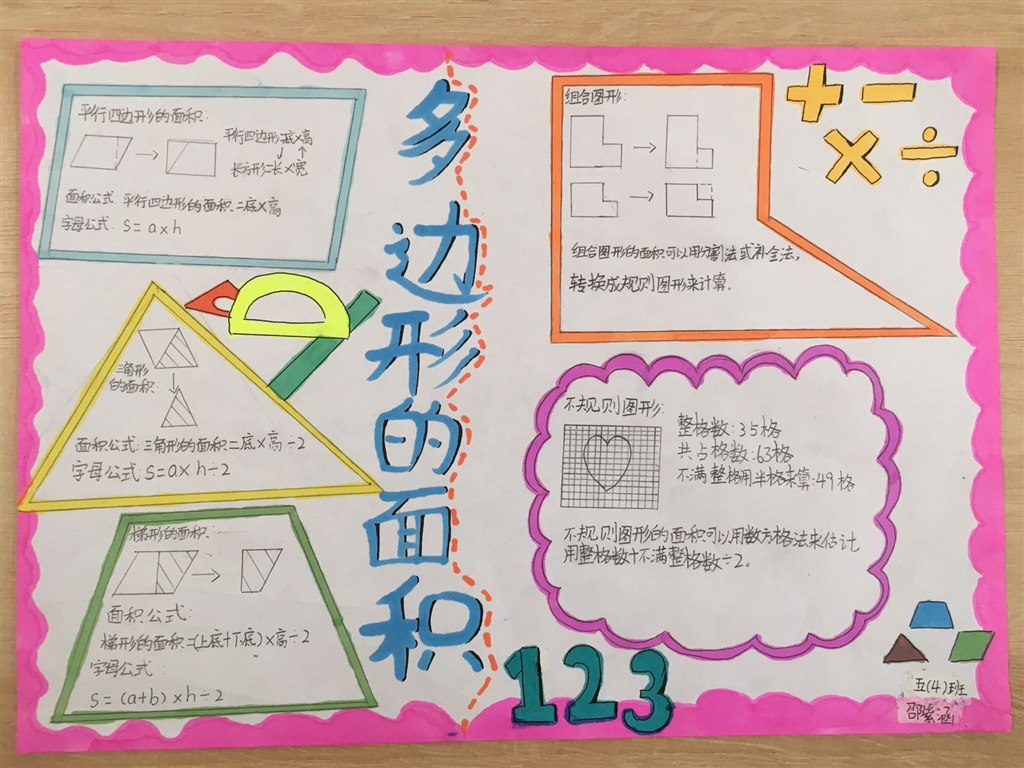 多边形的面积
平行四边形的面积:
平行四边形=底×高
长方形=长×宽
面积公式:平行四边形的面积=底×高
字母公式:S=a×h
三角形
的面积:
面积公式:三角形的面积=底×高÷2
字母公式S=a×h÷2
梯形的面积:
面积公式:
梯形的面积=(上底+下底)×高÷2
字母公式
S=(a+b)×h÷2
组合图形:
组合图形的面积可以用分割法或补全法,
转换成规则图形来计算。
+ −
× ÷
不规则图形:
整格数:35格
共占格数:63格
不满整格用半格来算:49格
不规则图形的面积可以用数方格法来估计
用整格数+不满整格数÷2。
123
五(4)班
邵紫涵